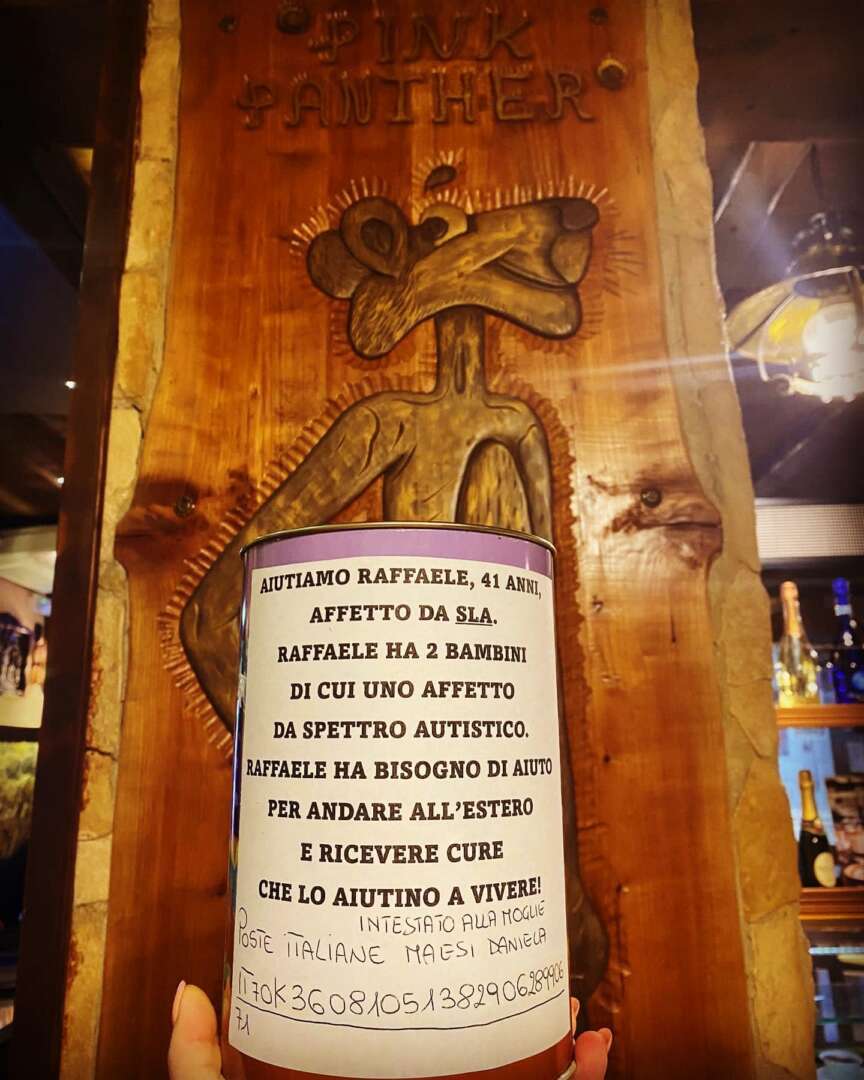 PINK
PANTHER
AIUTIAMO RAFFAELE, 41 ANNI,
AFFETTO DA SLA.
RAFFAELE HA 2 BAMBINI
DI CUI UNO AFFETTO
DA SPETTRO AUTISTICO.
RAFFAELE HA BISOGNO DI AIUTO
PER ANDARE ALL'ESTERO
E RICEVERE CURE
CHE LO AIUTINO A VIVERE!
INTESTATO ALLA MOGLIE
POSTE ITALIANE MAESI DANIELA
IT70K3608105138290628990६
71